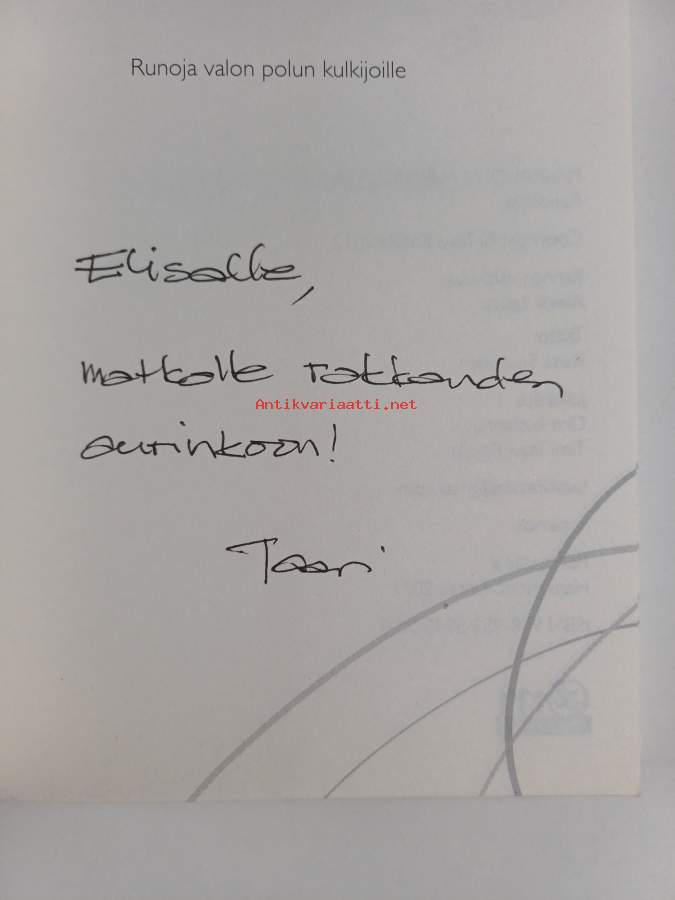 Runoja valon polun kulkijoille
Elisalle,
matkalle rakkauden
Antikvariaatti.net
aurinkoon!